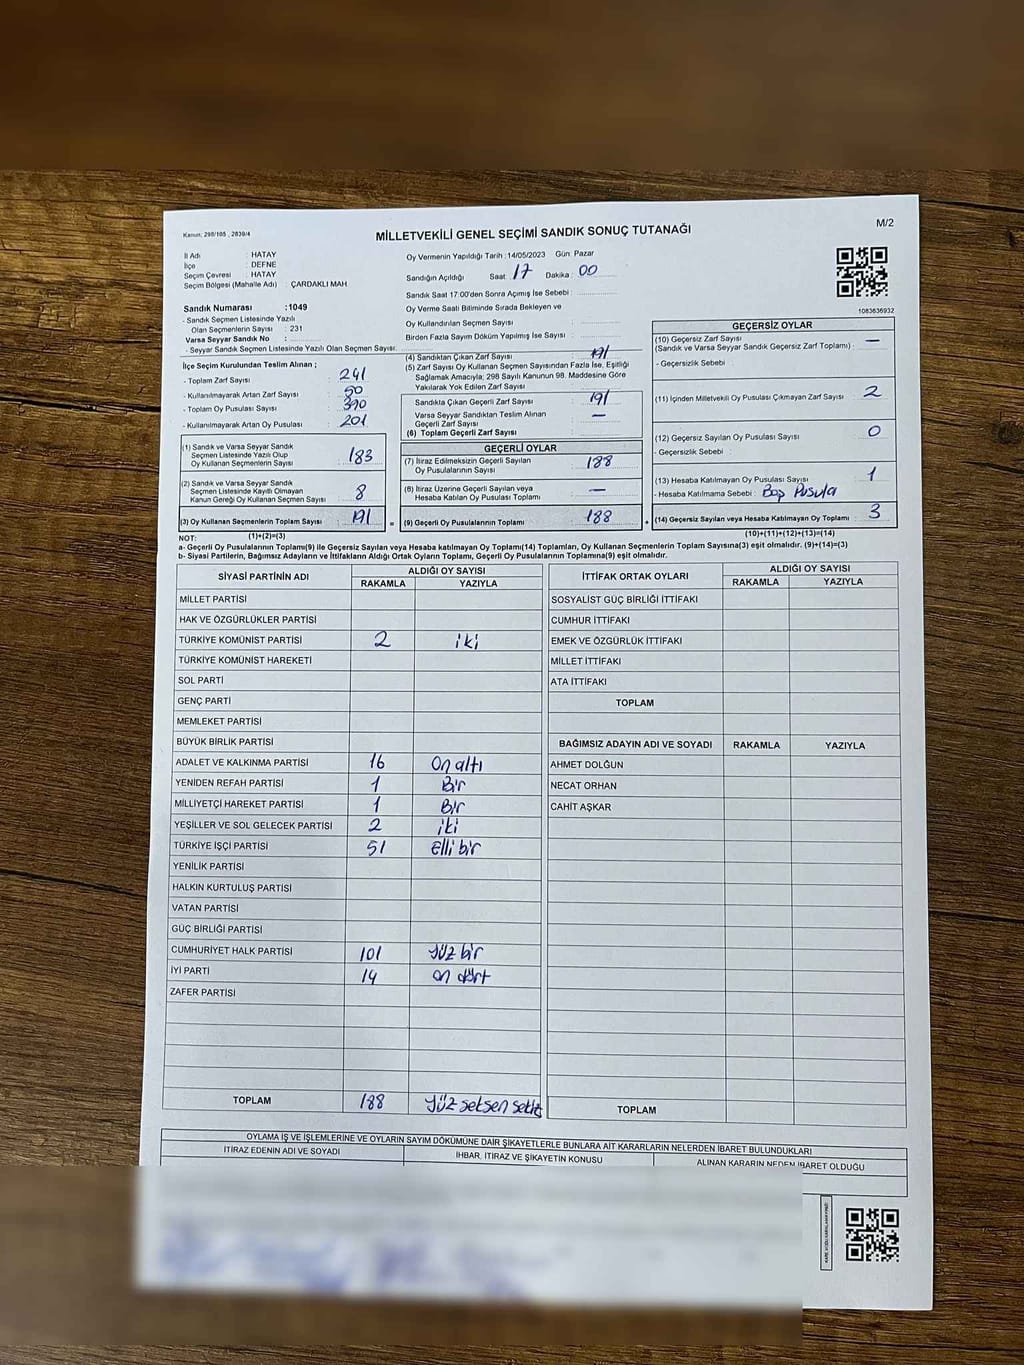 Kanun: 298/105 , 2839/4
MİLLETVEKİLİ GENEL SEÇİMİ SANDIK SONUÇ TUTANAĞI
M/2
İl Adı : HATAY
İlçe : DEFNE
Seçim Çevresi : HATAY
Seçim Bölgesi (Mahalle Adı) : ÇARDAKLI MAH
Sandık Numarası :1049
- Sandık Seçmen Listesinde Yazılı
Olan Seçmenlerin Sayısı : 231
Varsa Seyyar Sandık No :
- Seyyar Sandık Seçmen Listesinde Yazılı Olan Seçmen Sayısı:
Oy Vermenin Yapıldığı Tarih :14/05/2023 Gün: Pazar
Sandığın Açıldığı Saat: 17 Dakika: 00
Sandık Saat 17:00'den Sonra Açımış İse Sebebi :
Oy Verme Saati Bitiminde Sırada Bekleyen ve
Oy Kullandırılan Seçmen Sayısı :
Birden Fazla Sayım Döküm Yapılmış İse Sayısı :
1083636932
İlçe Seçim Kurulundan Teslim Alınan ;
- Toplam Zarf Sayısı : 241
- Kullanılmayarak Artan Zarf Sayısı : 50
- Toplam Oy Pusulası Sayısı : 390
- Kullanılmayarak Artan Oy Pusulası : 201
(1) Sandık ve Varsa Seyyar Sandık
Seçmen Listesinde Yazılı Olup
Oy Kullanan Seçmenlerin Sayısı : 183
(2) Sandık ve Varsa Seyyar Sandık
Seçmen Listesinde Kayıtlı Olmayan
Kanun Gereği Oy Kullanan Seçmen Sayısı : 8
(3) Oy Kullanan Seçmenlerin Toplam Sayısı : 191
(1)+(2)=(3)
(4) Sandıktan Çıkan Zarf Sayısı : 191
(5) Zarf Sayısı Oy Kullanan Seçmen Sayısından Fazla İse, Eşitliği
Sağlamak Amacıyla; 298 Sayılı Kanunun 98. Maddesine Göre
Yakılarak Yok Edilen Zarf Sayısı :
Sandıkta Çıkan Geçerli Zarf Sayısı : 191
Varsa Seyyar Sandıktan Teslim Alınan
Geçerli Zarf Sayısı : —
(6) Toplam Geçerli Zarf Sayısı :
GEÇERLİ OYLAR
(7) İtiraz Edilmeksizin Geçerli Sayılan
Oy Pusulalarının Sayısı : 188
(8) İtiraz Üzerine Geçerli Sayılan veya
Hesaba Katılan Oy Pusulası Toplamı : —
= (9) Geçerli Oy Pusulalarının Toplamı : 188
GEÇERSİZ OYLAR
(10) Geçersiz Zarf Sayısı
(Sandık ve Varsa Seyyar Sandık Geçersiz Zarf Toplamı) : —
- Geçersizlik Sebebi :
(11) İçinden Milletvekili Oy Pusulası Çıkmayan Zarf Sayısı : 2
(12) Geçersiz Sayılan Oy Pusulası Sayısı : 0
- Geçersizlik Sebebi :
(13) Hesaba Katılmayan Oy Pusulası Sayısı : 1
- Hesaba Katılmama Sebebi : Boş Pusula
+ (14) Geçersiz Sayılan veya Hesaba Katılmayan Oy Toplamı : 3
(10)+(11)+(12)+(13)=(14)
NOT:
a- Geçerli Oy Pusulalarının Toplamı(9) ile Geçersiz Sayılan veya Hesaba katılmayan Oy Toplamı(14) Toplamları, Oy Kullanan Seçmenlerin Toplam Sayısına(3) eşit olmalıdır. (9)+(14)=(3)
b- Siyasi Partilerin, Bağımsız Adayların ve İttifakların Aldığı Ortak Oyların Toplamı, Geçerli Oy Pusulalarının Toplamına(9) eşit olmalıdır.
SİYASİ PARTİNİN ADI
ALDIĞI OY SAYISI
RAKAMLA YAZIYLA
MİLLET PARTİSİ
HAK VE ÖZGÜRLÜKLER PARTİSİ
TÜRKİYE KOMÜNİST PARTİSİ 2 iki
TÜRKİYE KOMÜNİST HAREKETİ
SOL PARTİ
GENÇ PARTİ
MEMLEKET PARTİSİ
BÜYÜK BİRLİK PARTİSİ
ADALET VE KALKINMA PARTİSİ 16 On altı
YENİDEN REFAH PARTİSİ 1 Bir
MİLLİYETÇİ HAREKET PARTİSİ 1 Bir
YEŞİLLER VE SOL GELECEK PARTİSİ 2 iki
TÜRKİYE İŞÇİ PARTİSİ 51 elli bir
YENİLİK PARTİSİ
HALKIN KURTULUŞ PARTİSİ
VATAN PARTİSİ
GÜÇ BİRLİĞİ PARTİSİ
CUMHURİYET HALK PARTİSİ 101 Yüz bir
İYİ PARTİ 14 on dört
ZAFER PARTİSİ
TOPLAM 188 Yüz seksen sekiz
İTTİFAK ORTAK OYLARI
ALDIĞI OY SAYISI
RAKAMLA YAZIYLA
SOSYALİST GÜÇ BİRLİĞİ İTTİFAKI
CUMHUR İTTİFAKI
EMEK VE ÖZGÜRLÜK İTTİFAKI
MİLLET İTTİFAKI
ATA İTTİFAKI
TOPLAM
BAĞIMSIZ ADAYIN ADI VE SOYADI RAKAMLA YAZIYLA
AHMET DOLĞUN
NECAT ORHAN
CAHİT AŞKAR
TOPLAM
OYLAMA İŞ VE İŞLEMLERİNE VE OYLARIN SAYIM DÖKÜMÜNE DAİR ŞİKAYETLERLE BUNLARA AİT KARARLARIN NELERDEN İBARET BULUNDUKLARI
İTİRAZ EDENİN ADI VE SOYADI
İHBAR, İTİRAZ VE ŞİKAYETİN KONUSU
ALINAN KARARIN NEDEN İBARET OLDUĞU